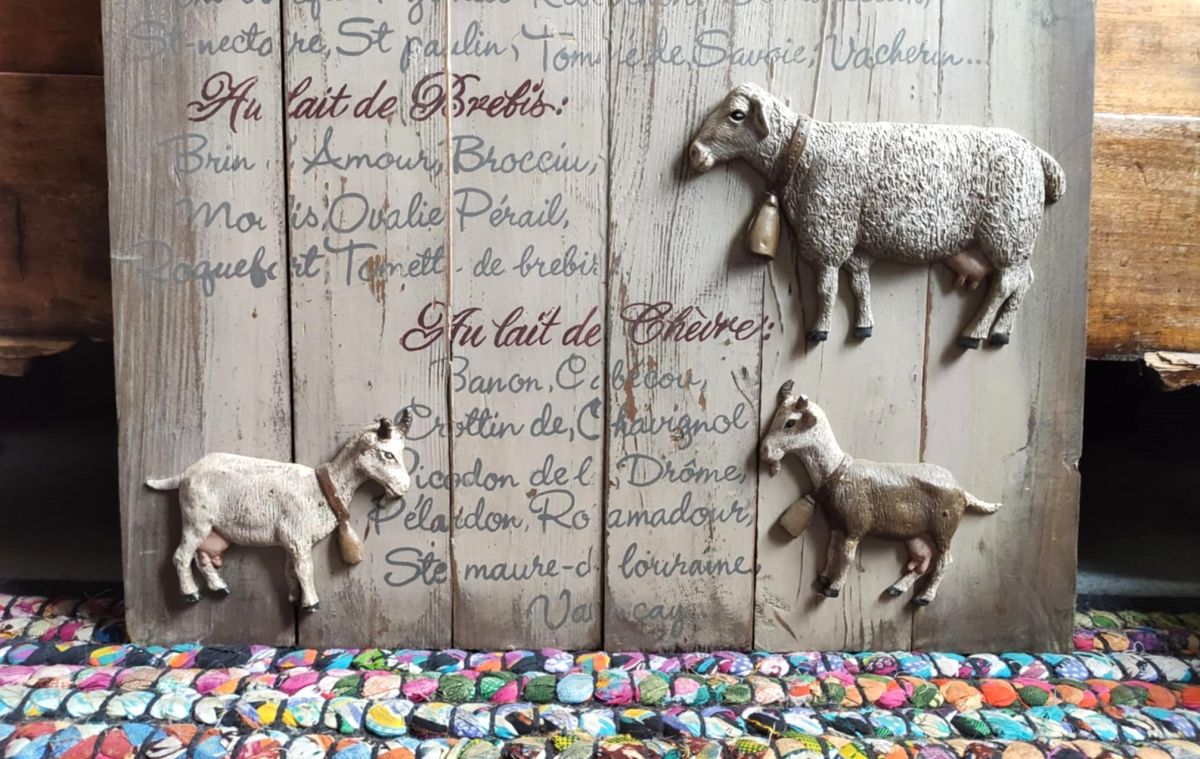 St-nectaire, St paulin, Tomme de Savoie, Vacherin...
Au lait de Brebis:
Brin d'Amour, Brocciu,
Ovalie Pérail,
Roquefort Tomette de brebis
Au lait de Chèvre:
Banon, Cabécou,
Crottin de, Chavignol
Picodon de la Drôme,
Pélardon, Rocamadour,
Ste maure-de touraine,
Valençay